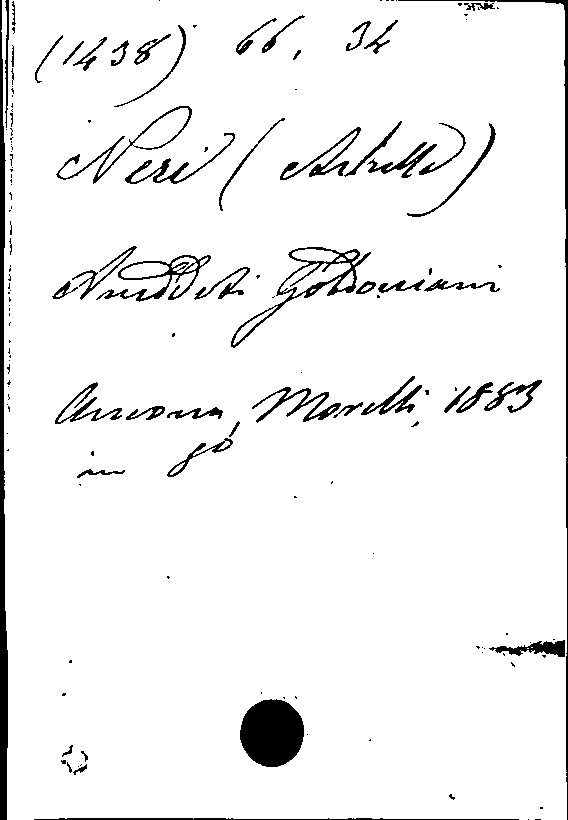 (1438) 66, 34
Neri (Achille)
Aneddoti Goldoniani
Ancona, Morelli, 1883
in 8º